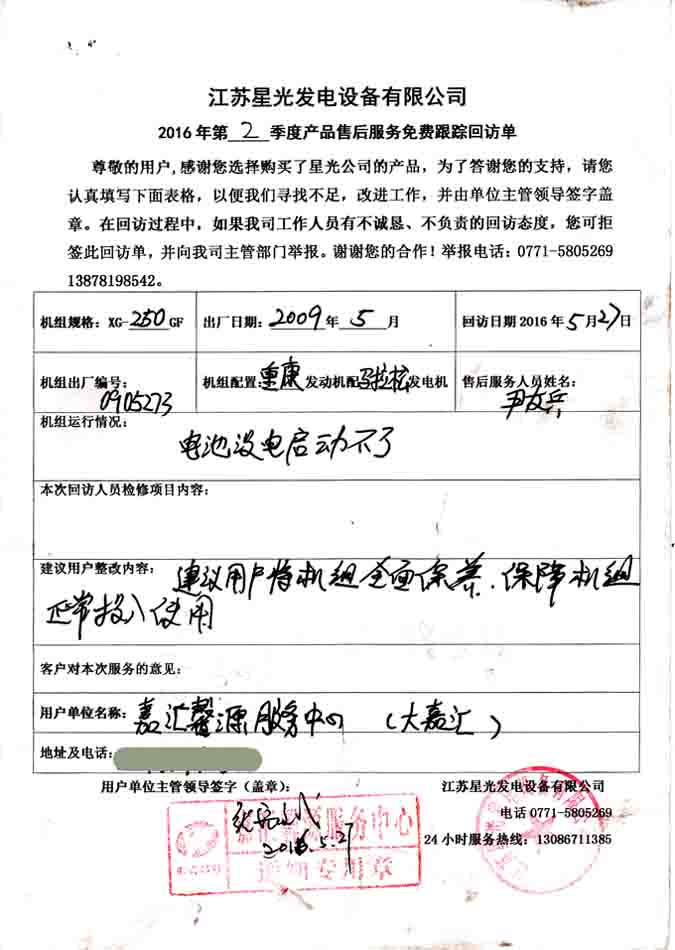 江苏星光发电设备有限公司
2016年第2季度产品售后服务免费跟踪回访单
尊敬的用户,感谢您选择购买了星光公司的产品，为了答谢您的支持，请您
认真填写下面表格，以便我们寻找不足，改进工作，并由单位主管领导签字盖
章。在回访过程中，如果我司工作人员有不诚恳、不负责的回访态度，您可拒
签此回访单，并向我司主管部门举报。谢谢您的合作！举报电话：0771-5805269
13878198542。
机组规格：XG-250GF 出厂日期：2009年5月 回访日期2016年5月27日
机组出厂编号：0905273 机组配置：重康发动机配马拉松发电机 售后服务人员姓名：
机组运行情况：
电池没电启动不了
本次回访人员检修项目内容：
建议用户整改内容：建议用户将机组全面保养、保障机组
正常投入使用
客户对本次服务的意见：
用户单位名称：嘉汇馨源服务中心（大嘉汇）
地址及电话：
用户单位主管领导签字（盖章）： 江苏星光发电设备有限公司
服务中心 电话0771-5805269
2016.5.27 24小时服务热线：13086711385
专用章